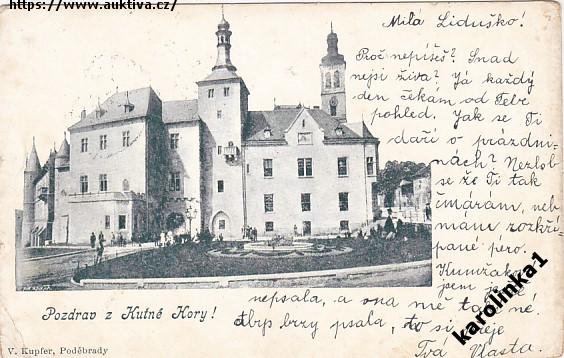 https://www.auktiva.cz/
Milá Liduško!
Proč nepíšeš? Snad
nejsi živa? Já každý
den čekám od Tebe
pohled. Jak se Ti
daří o prázdni-
nách? Nezlob
se že Ti tak
čmárám, neb
mám rozkří-
pané péro.
jsem
nepsala, a ona mě také ne.
aby brzy psala, to si přeje
Tvá Vlasta.
Pozdrav z Kutné Hory!
V. Kupfer, Poděbrady
karolinka1